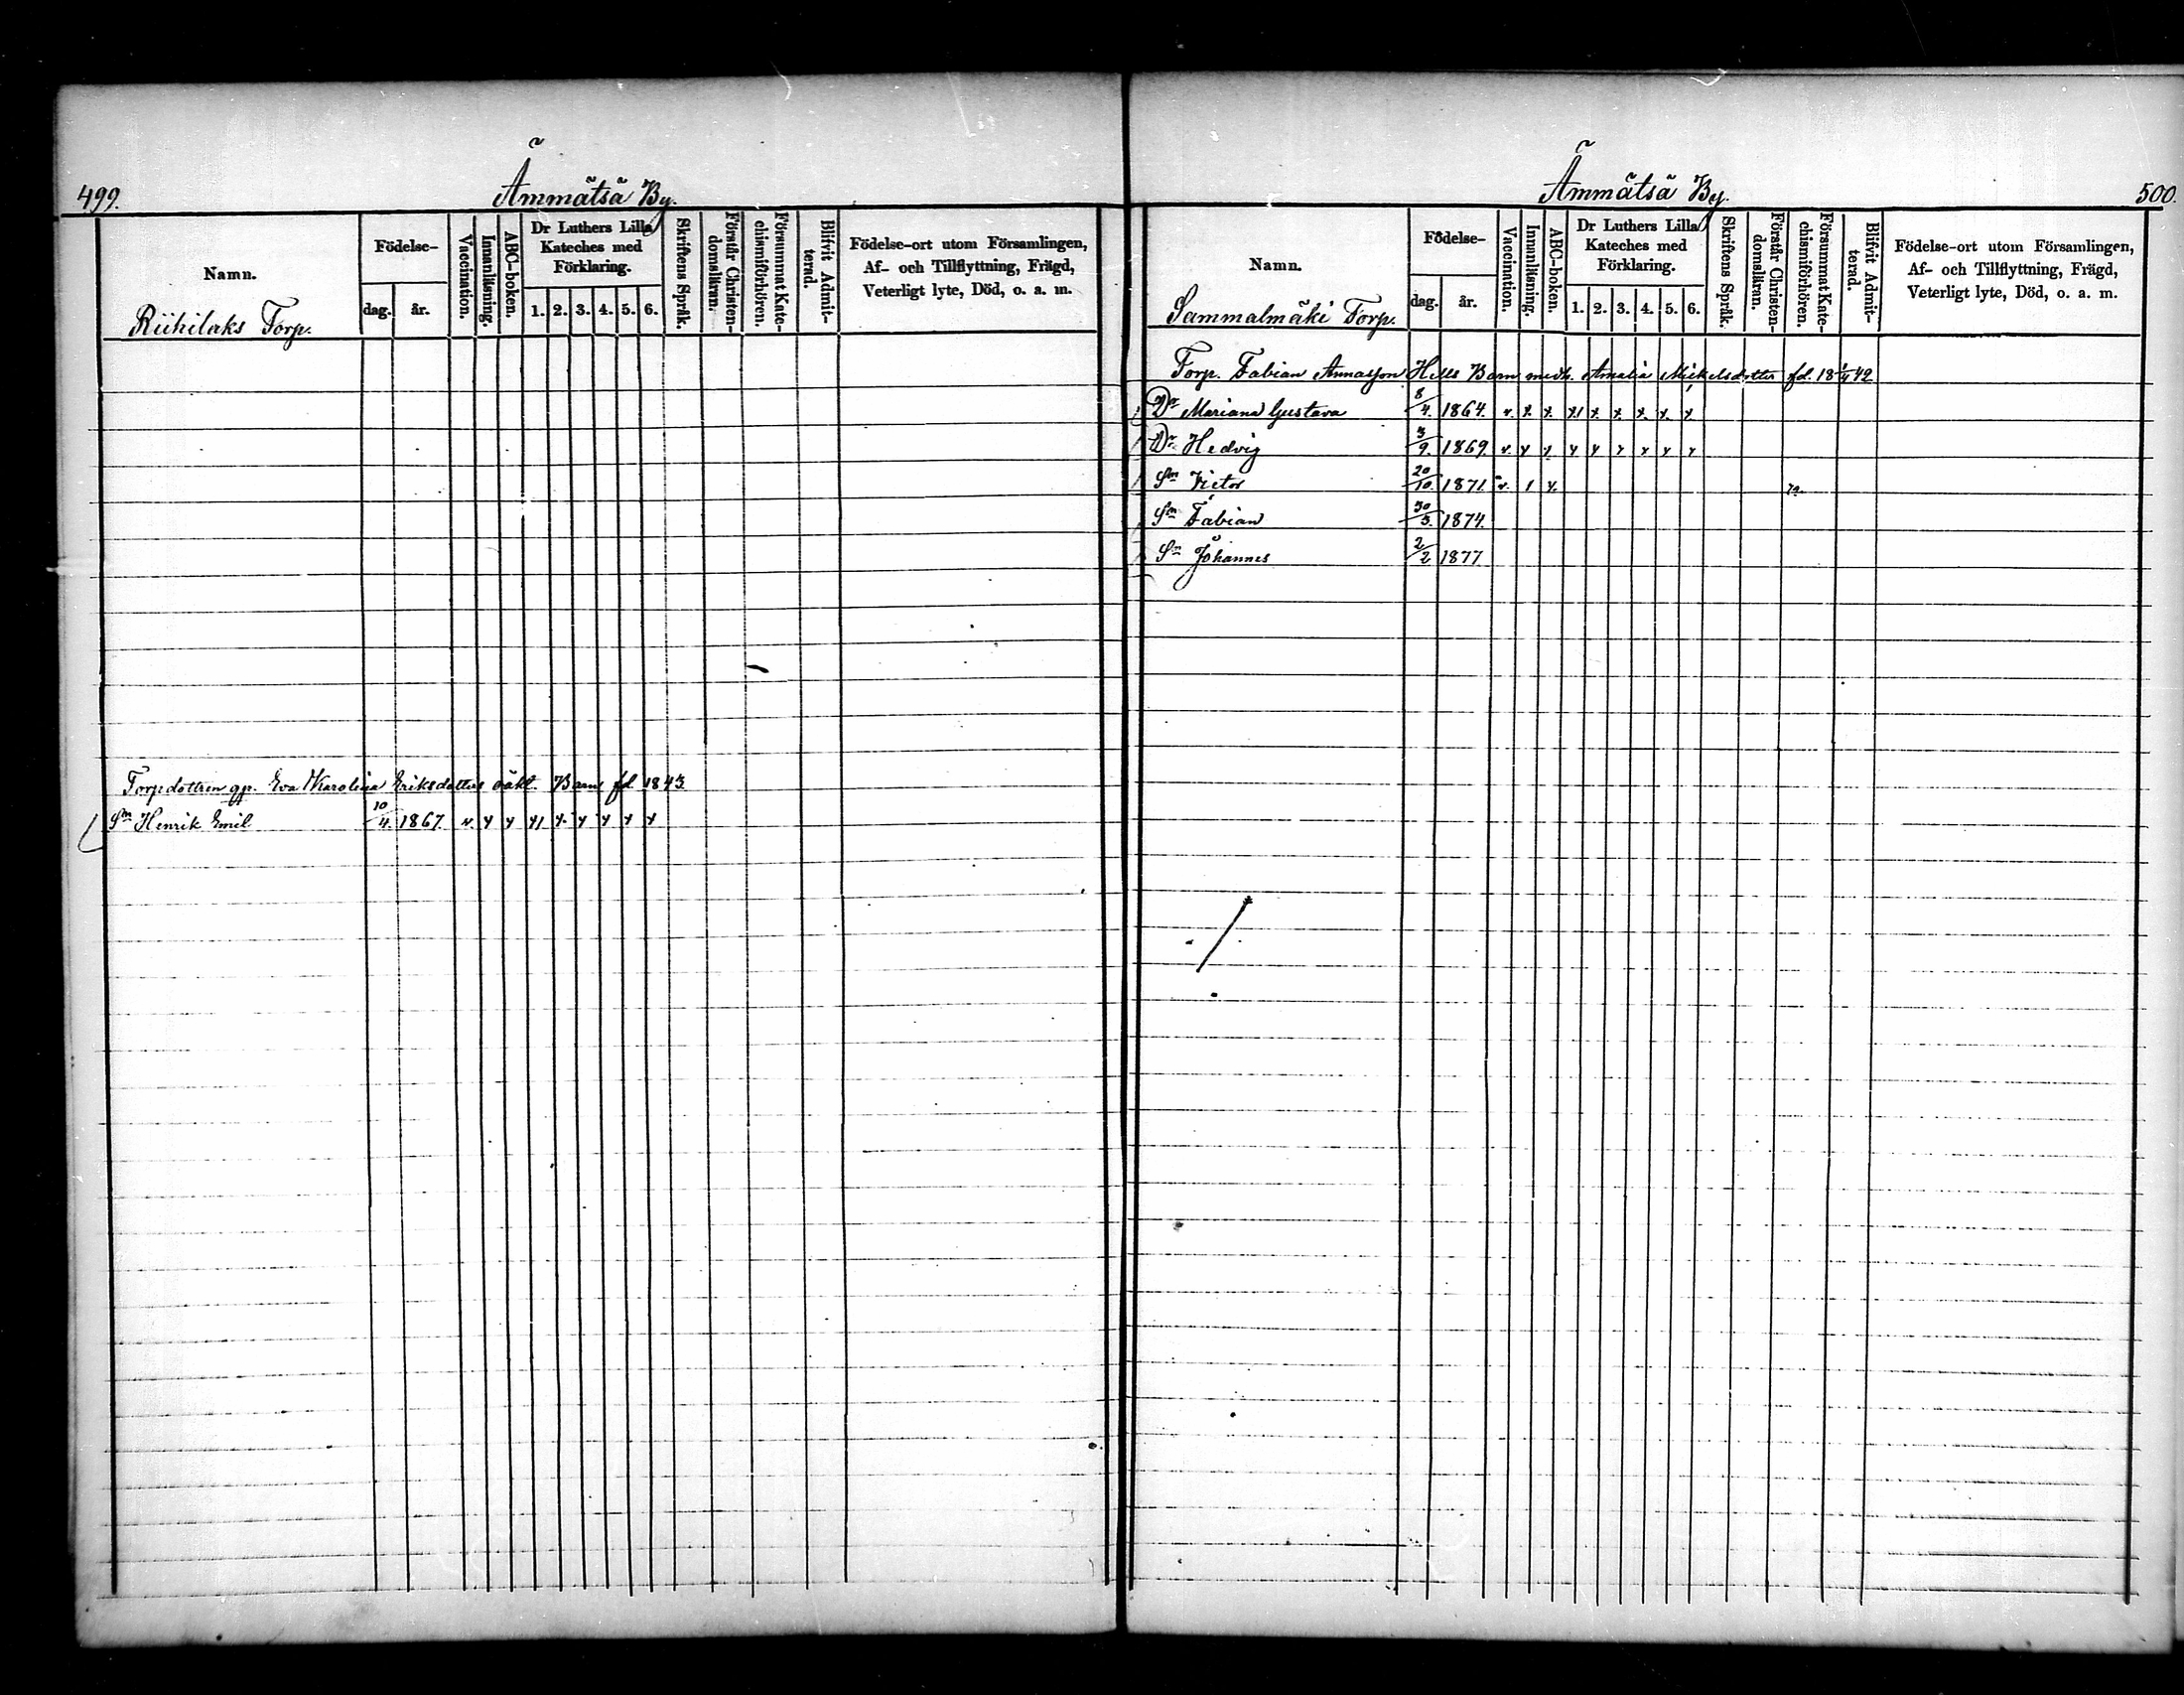 499.
Ämmätsä By.
Namn.
Födelse-
dag.
år.
Vaccination.
Innanläsning.
ABC-boken.
Dr Luthers Lilla
Kateches med
Förklaring.
1. 2. 3. 4. 5. 6.
Skriftens Språk.
Förstår Christen-
domsläran.
Försummat Kate-
chismiförhören.
Blifvit Admit-
terad.
Födelse-ort utom Församlingen,
Af- och Tillflyttning, Frägd,
Veterligt lyte, Död, o. a. m.
Riihilaks Torp.
Torpdottren gp. Eva Karolina Eriksdotters oäkt. Barn fd 1843.
Sn Henrik Emil 10/4. 1867.
Ämmätsä By.
500.
Namn.
Födelse-
dag.
år.
Vaccination.
Innanläsning.
ABC-boken.
Dr Luthers Lilla
Kateches med
Förklaring.
1. 2. 3. 4. 5. 6.
Skriftens Språk.
Förstår Christen-
domsläran.
Försummat Kate-
chismiförhören.
Blifvit Admit-
terad.
Födelse-ort utom Församlingen,
Af- och Tillflyttning, Frägd,
Veterligt lyte, Död, o. a. m.
Sammalmäki Torp.
Torp. Fabian Annasson Hells Barn medh. Amalia Mickelsdotter fd. 18 42
Dr Mariana Gustava 8/4. 1864.
Dr Hedvig 3/9. 1869.
Sn Victor 20/10. 1871.
Sn Fabian 30/3. 1874.
Sn Johannes 2/2 1877